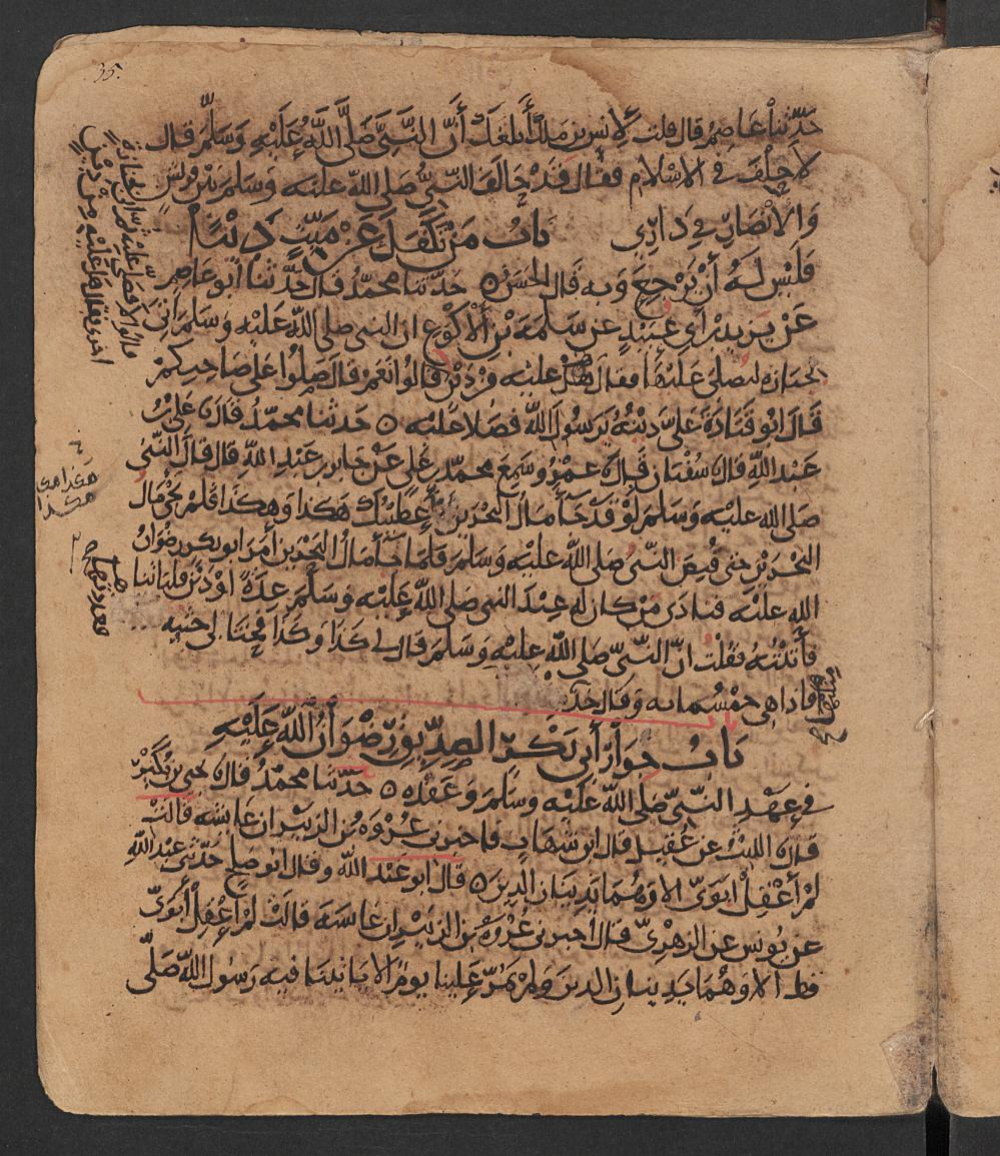 35.
حدثنا عاصم قال قلت لانس بن ملك أبلغك أن النبي صلى الله عليه وسلم قال
لا حلف في الاسلام فقال قد حالف النبي صلى الله عليه وسلم بين قريش
والانصار في داري باب من تكفل عن ميت دينا
فليس له أن يرجع وبه قال الحسن ه حدثنا محمد قال حدثنا ابو عاصم
عن يزيد بن أبي عبيد عن سلمة بن الأكوع ان النبي صلى الله عليه وسلم أتي
بجنازة ليصلي عليها فقال هل عليه من دين قالوا نعم قال صلوا على صاحبكم
قال ابو قتادة علي دينه يرسول الله فصلا عليه ه حدثنا محمد قال علي بن
عبد الله قال سفيان قال عمرو سمع محمد بن علي عن جابر بن عبد الله قال قال النبي
صلى الله عليه وسلم لو قد جآ مال البحرين أعطيتك هكذا وهكذا فلم يجي مال
البحرين حتى قبض النبي صلى الله عليه وسلم فلما جآ مال البحرين أمر ابو بكر رضوان
الله عليه فنادى من كان له عند النبي صلى الله عليه وسلم عدة او دين فلياتنا
فأتيته فقلت ان النبي صلى الله عليه وسلم قال لي كذا وكذا فحثا لي حثيه
فاذا هي خمسمايه وقال خذ
باب جوار أبي بكر الصديق رضوان الله عليه
في عهد النبي صلى الله عليه وسلم وعقده ه حدثنا محمد قال يحيى بن بكير
قال الليث عن عقيل قال ابن شهاب فاخبرني عروة بن الزبير ان عايشه قالت
لم أعقل ابوي الا وهما يدينان الدين ه قال ابو عبد الله وقال ابو صلح حدثني عبد الله
عن يونس عن الزهري قال اخبرني عروة بن الزبير ان عايشة قالت لم أعقل أبوي
قط الا وهما يدينان الدين ولم يمر علينا يوم الا ياتينا فيه رسول الله صلى
قالوا لا فصلى عليه ثم أتي بجنازة
اخرى فقال هل عليه من دين
هكذا